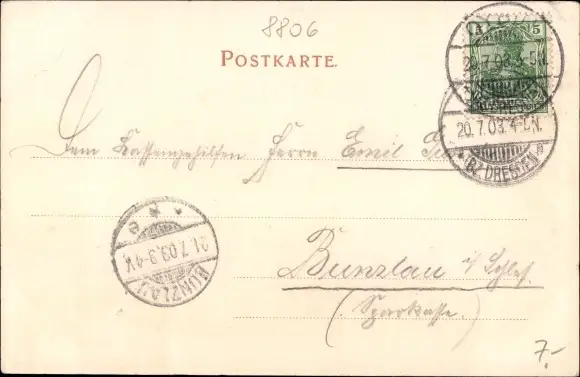 8806
POSTKARTE.
5
20.7.03.4-5N.
(BZ. DRESDEN)
Dem Kassengehilfen Herrn Emil
21.7.03.9-4V.
BUNZLAU
Bunzlau i/ Schles.
(Sparkasse.)
7.-